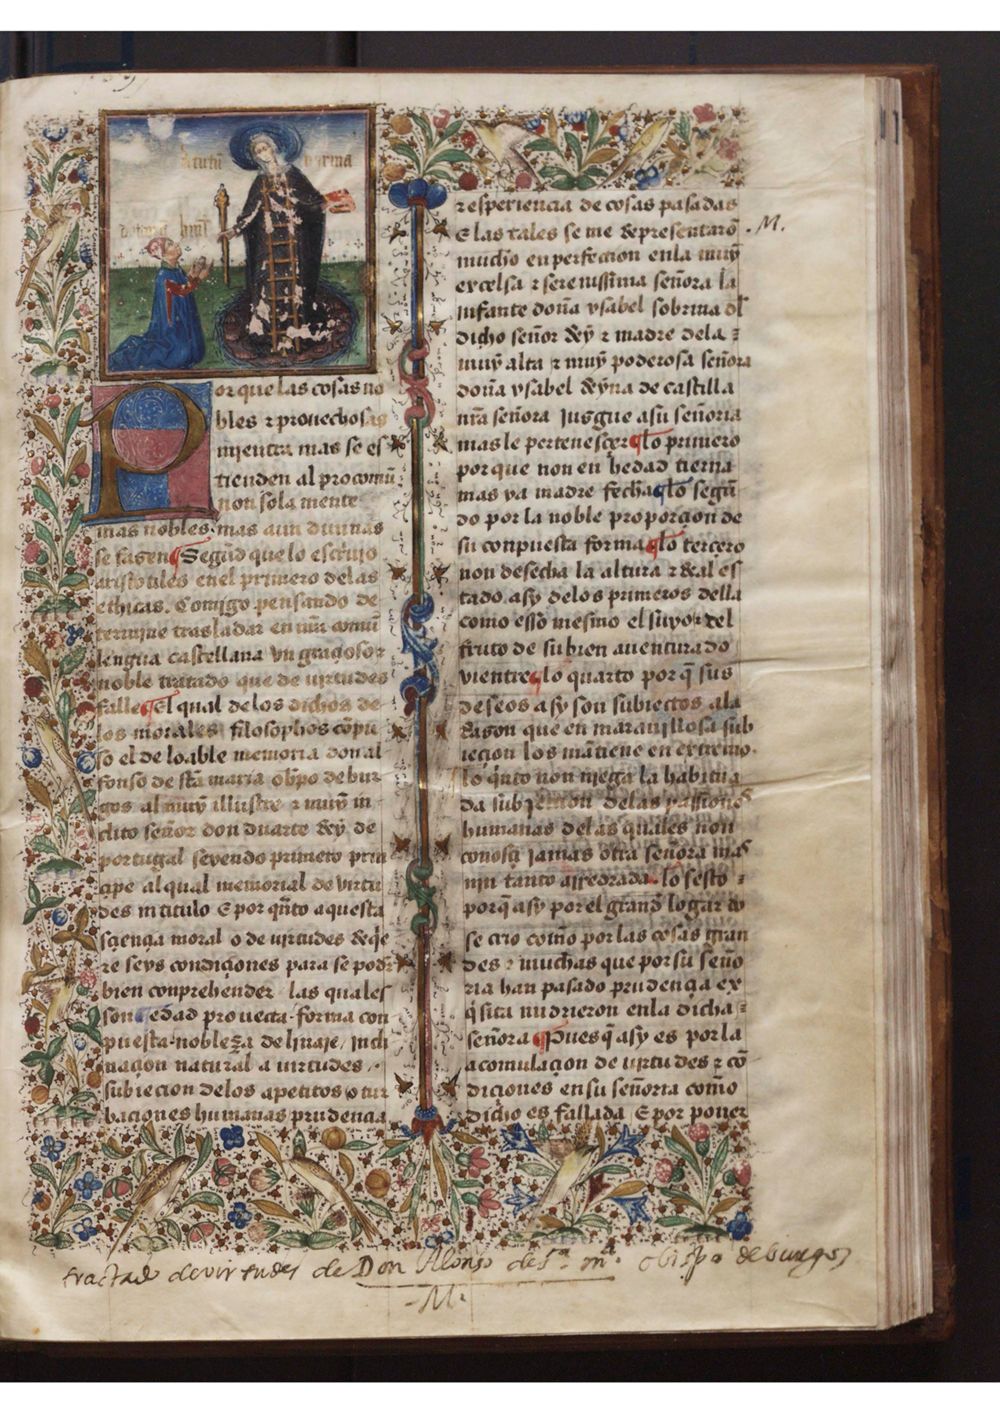 or que las cosas no
bles ⁊ prouechosas
mientra mas se es
tienden al procomũ
non sola mente
mas nobles. mas aun diuinas
se fasen Segũd que lo escriuio
aristotiles en el primero de las
ethicas. Comigo pensando de
termine trasladar en nr̃a comũ
lengua castellana vn graçioso ⁊
noble tratado que de virtudes
falle El qual de los dichos de
los morales filosophos cõpu
so el de loable memoria don al
fonso de stã maria obpo de bur
gos al muy̆ illustre ⁊ muy̆ in
clito señor don duarte Rey̆ de
portugal seyendo primero prin
çipe al qual memorial de virtu
des intitulo E por qñto aquesta
sçiençia moral o de uirtudes Reqie
re seys condiçiones para se podr
bien conprehender las quales
son edad prouecta. forma con
puesta. nobleza de linaje / incli
naçion natural a uirtudes /.
subiecion de los apetitos o tur
baciones humanas prudencia
⁊ esperiencia de cosas pasadas
E las tales se me Representarõ
mucho en perfecion en la muy̆
excelsa ⁊ serenissima señora la
infante doña ysabel sobrina dl
dicho señor Rey̆ ⁊ madre de la
muy̆ alta ⁊ muy̆ poderosa señora
doña ysabel Rey̆na de castilla
nr̃a señora Jusgue a sũ señoria
mas le pertenesçer lo primero
por que non en hedad tierna
mas ya madre fecha lo segũ
do por la noble proporçion de
su conpuesta forma lo tercero
non desecha la altura ⁊ Real es
tado. asy de los primeros della
como esso mesmo el suyo ⁊ del
fruto de su bien auenturado
vientre lo quarto por q̃ sus
deseos asy son subiectos a la
Rason que en marauillosa sub
iecion los mãtiene en extremo.
lo qñto non niega la habitua
da subjection de las passiones
humanas de las quales non
conosçi jamas otra señora mas
nin tanto arredrada. lo sesto
porq̃ asy por el grand logar do
se crio como por las cosas gran
des ⁊ muchas que por su seño
ria han pasado prudençia ex
q̃sita nudrieron en la dicha
señora Pues q̃ asy es por la
acomulaçion de uirtudes ⁊ cõ
diçiones en su señoria como
dicho es fallada E por poner
M.
tractado de virtudes de Don Alonso de s.ta m.a obispo de burgos
M.